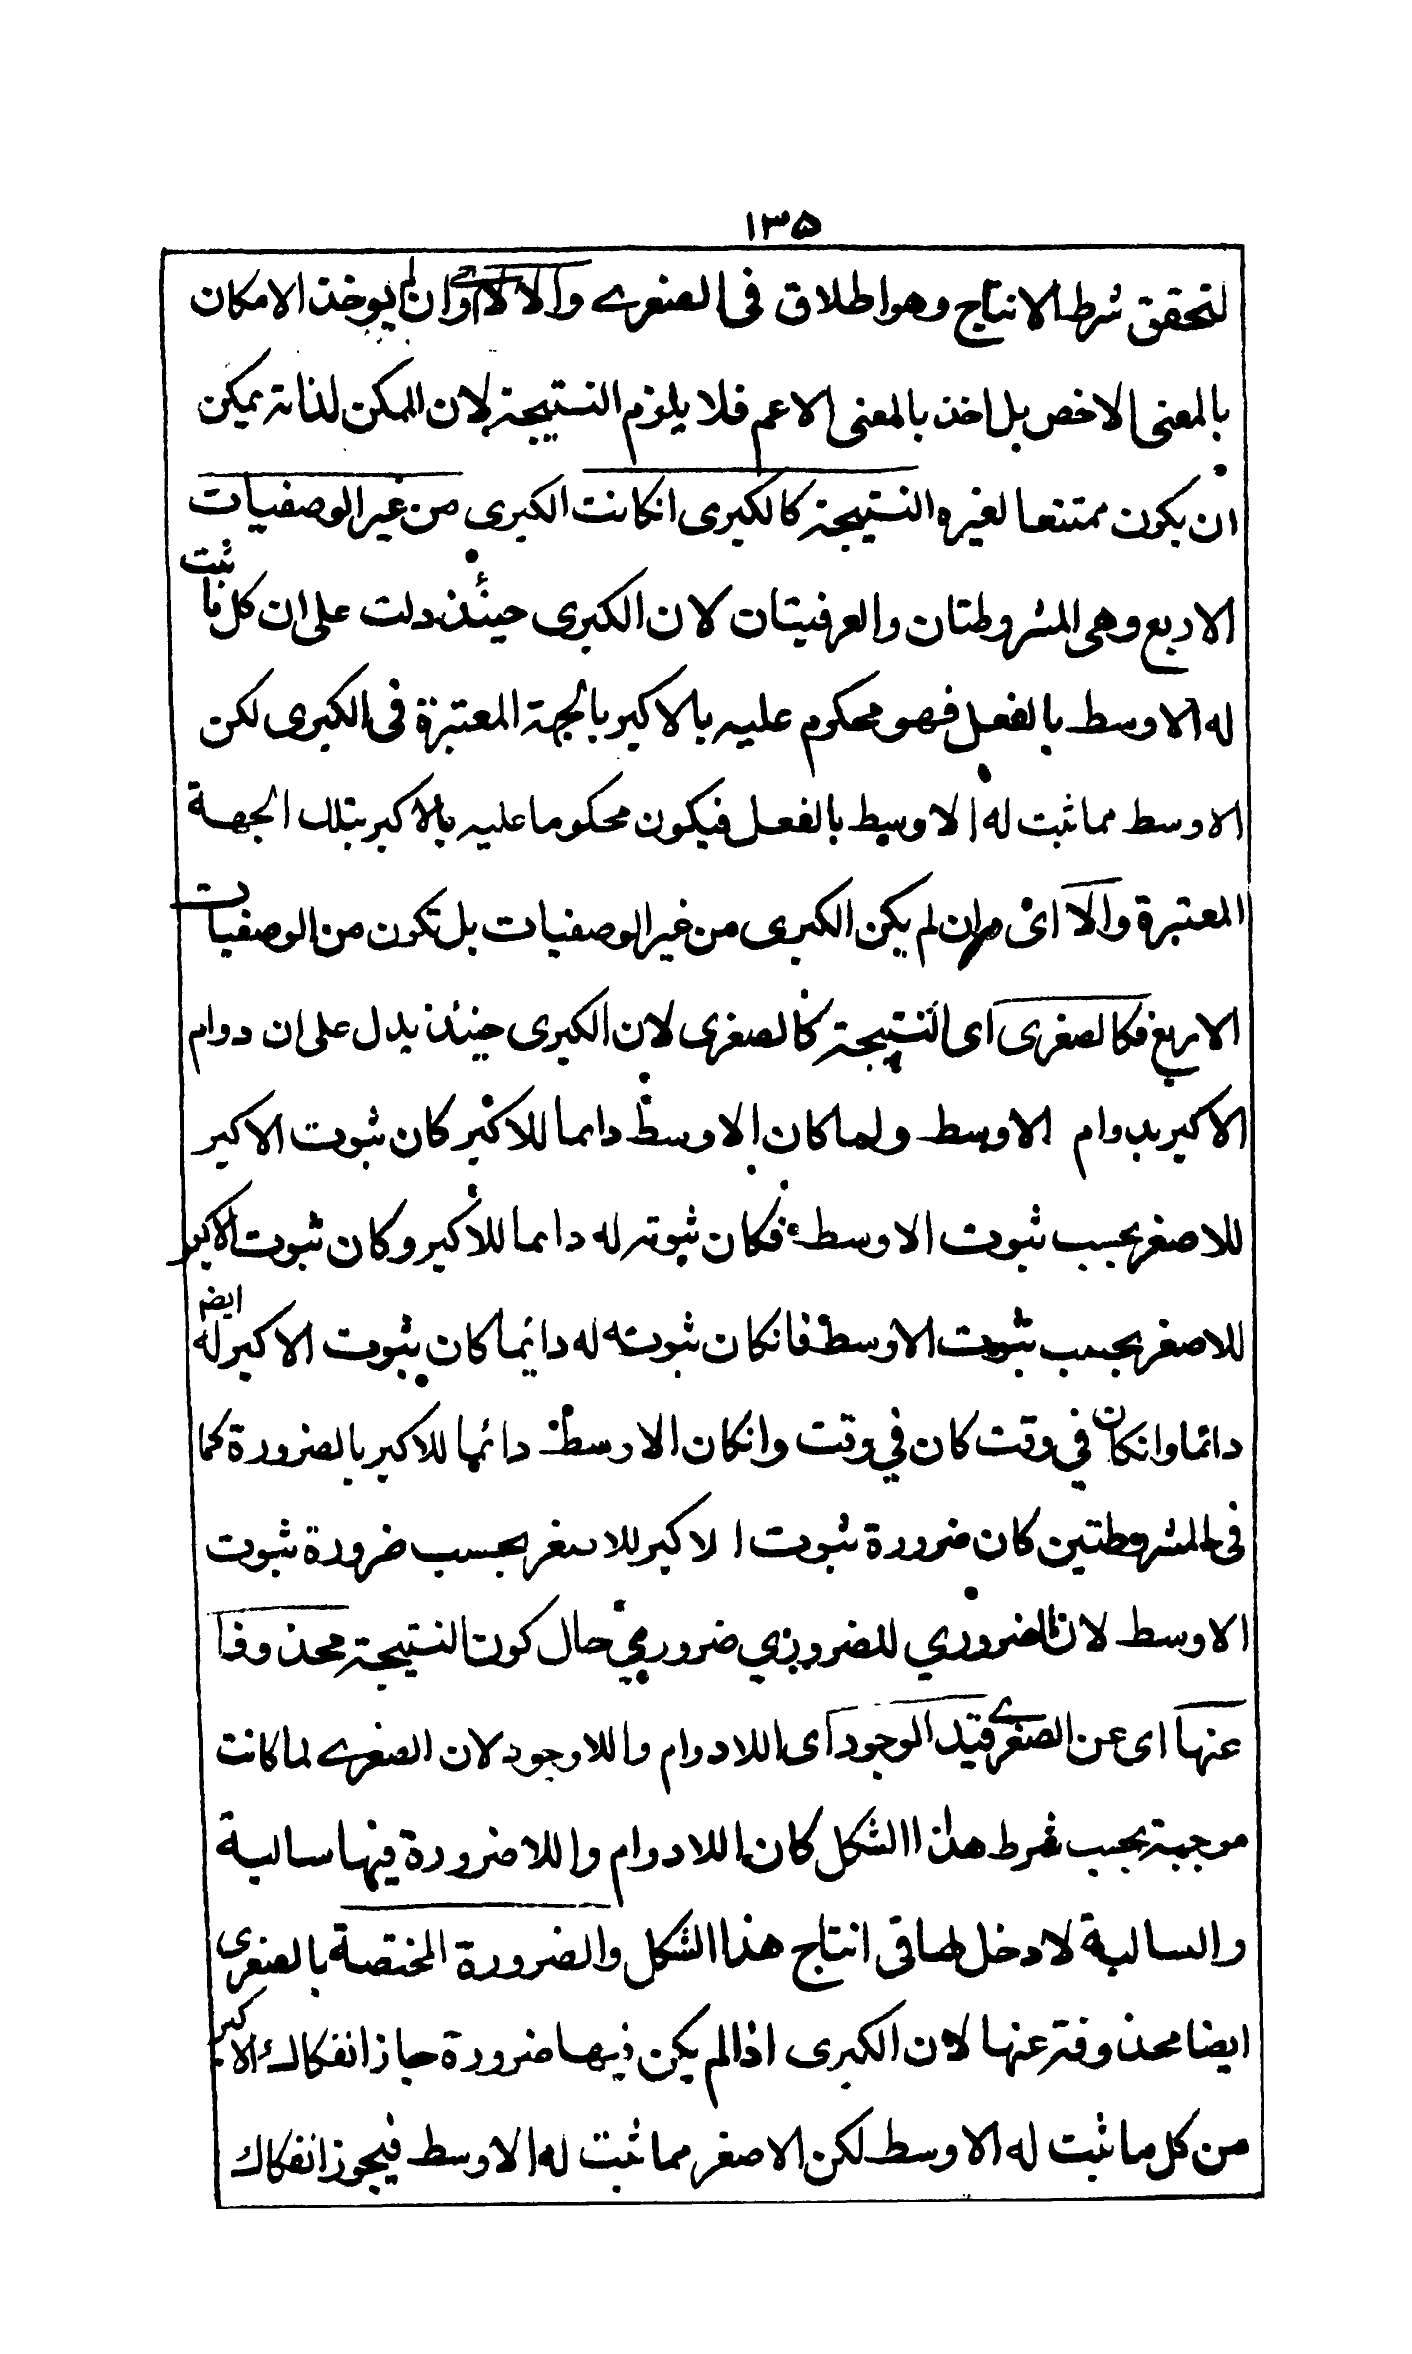 ۱۳۵
لتحقق شرط الانتاج وهو اطلاق فى الصغرے والا لا اى وان لم يوخذ الامكان
بالمعنى الاخص بل اخذ بالمعنى الاعم فلا يلزم النتيجة لان الممكن لذاته يمكن
ان يكون ممتنعا لغيره النتيجة كالكبرى انكانت الكبرى من غير الوصفيات
الاربع وهى المشروطتان والعرفيتان لان الكبرى حينئذ دلت على ان كل ما ثبت
له الاوسط بالفعل فهو محكوم عليه بالاكبر بالجهة المعتبرة فى الكبرى لكن
الاوسط مما ثبت له الاوسط بالفعل فيكون محكوما عليه بالاكبر بتلك الجهة
المعتبرة والا اى وان لم يكن الكبرى من غير الوصفيات بل تكون من الوصفيات
الاربع فكالصغرى اى النتيجة كالصغرى لان الكبرى حينئذ يدل على ان دوام
الاكبر بدوام الاوسط ولما كان الاوسط دايما للاكبر كان ثبوت الاكبر
للاصغر بحسب ثبوت الاوسط فكان ثبوته له دايما للاكبر وكان ثبوت الاكبر
للاصغر بحسب ثبوت الاوسط فانكان ثبوته له دائما كان ثبوت الاكبر له ايضا
دائما وانكان في وقت كان في وقت وانكان الاوسط دائما للاكبر بالضرورة كما
فى المشروطتين كان ضرورة ثبوت الاكبر للاصغر بحسب ضرورة ثبوت
الاوسط لان الضروري للضروري ضروري حال كون النتيجة محذوفا
عنها اى عن الصغرے قيد الوجود اى اللادوام واللاوجود لان الصغرے لما كانت
موجبة بحسب شرط هذا الشكل كان اللادوام واللاضرورة فيها سالبة
والسالبة لا دخل لها فى انتاج هذا الشكل والضرورة المختصة بالصغرى
ايضا محذوفة عنها لان الكبرى اذا لم يكن فيها ضرورة جاز انفكاك الاكبر
من كل ما ثبت له الاوسط لكن الاصغر مما ثبت له الاوسط فيجوز انفكاك